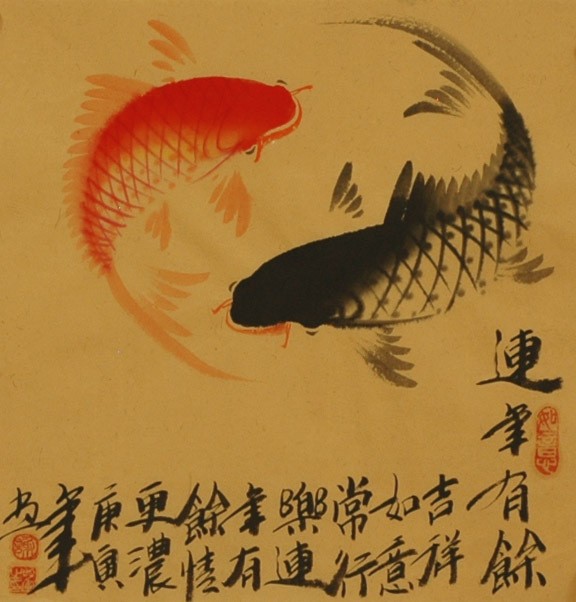 連年有餘
如意
吉祥
如意
常行
樂連
年有
餘情
更濃
庚寅
年